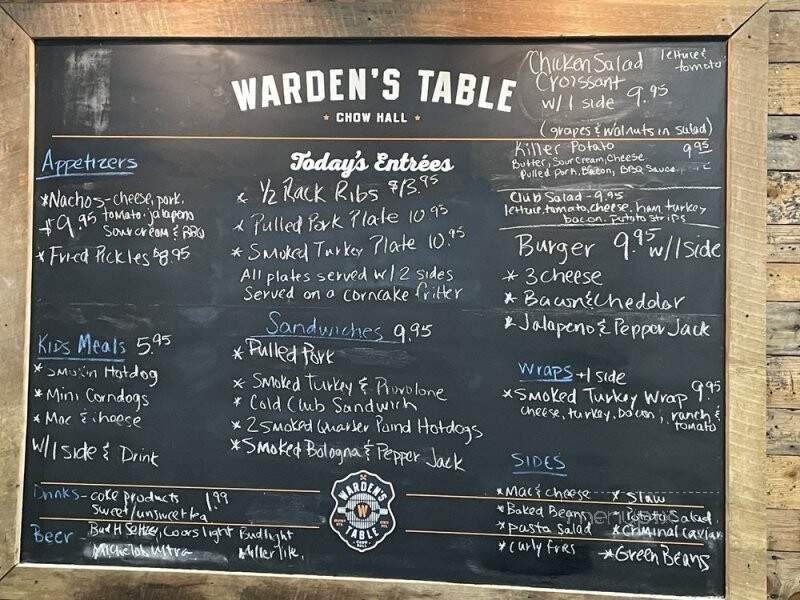 WARDEN'S TABLE
★ CHOW HALL ★
Appetizers
*Nachos-cheese, pork,
$9.95 tomato, jalapeno
Sour cream & BBQ
*Fried Pickles $8.95
Kids Meals 5.95
* Smokin Hotdog
* Mini Corndogs
* Mac & cheese
W/1 Side & Drink
Drinks - coke products 1.99
Sweet/unsweet tea
Beer - Bud H Seltzer, Coors light Budlight
Michelob Ultra Miller lite,
Today's Entrées
* 1/2 Rack Ribs $13.95
* Pulled Pork Plate 10.95
* Smoked Turkey Plate 10.95
All plates served w/2 sides
Served on a corncake fritter
Sandwiches 9.95
* Pulled Pork
* Smoked Turkey & Provolone
* Cold Club Sandwich
* 2 Smoked Quarter Pound Hotdogs
*Smoked Bologna & Pepper Jack
WARDEN'S
W
TABLE
Chicken Salad lettuce &
Croissant tomato
w/1 side 9.95
(grapes & walnuts in salad)
Killer Potato 9.95
Butter, Sour Cream, Cheese
Pulled Pork, Bacon, BBQ Sauce
Club Salad - 9.95
lettuce, tomato, cheese, ham, turkey
bacon, potato strips
Burger 9.95 w/1 Side
* 3 cheese
* Bacon & Cheddar
* Jalapeno & Pepper Jack
Wraps +1 side
*Smoked Turkey Wrap 9.95
cheese, turkey, bacon, ranch &
tomato
SIDES
*Mac & cheese * Slaw
*Baked Beans *Potato Salad
*pasta salad *Criminal Caviar
*curly fries *Green Beans